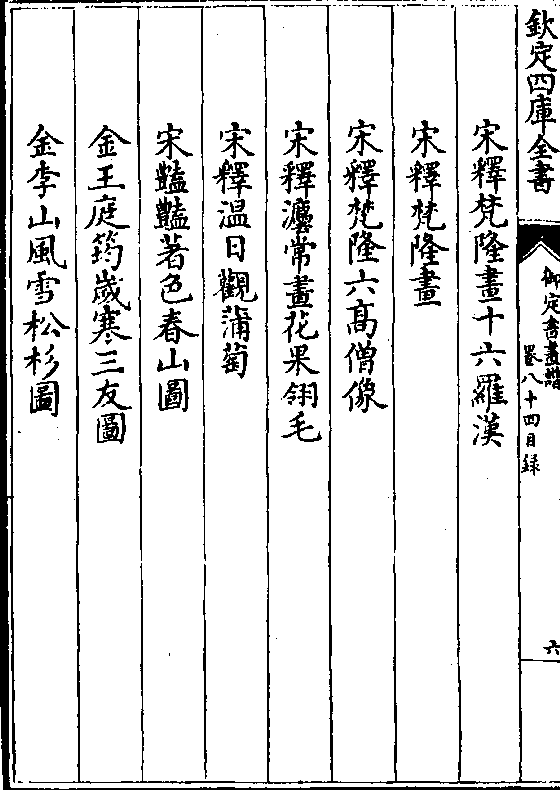 欽定四庫全書
御定書畫譜
卷八十四目録
六
宋釋梵隆畫十六羅漢
宋釋梵隆畫
宋釋梵隆六髙僧像
宋釋瀍常畫花果翎毛
宋釋温日觀蒲萄
宋豔豔著色春山圖
金王庭筠嵗寒三友圖
金李山風雪松杉圖